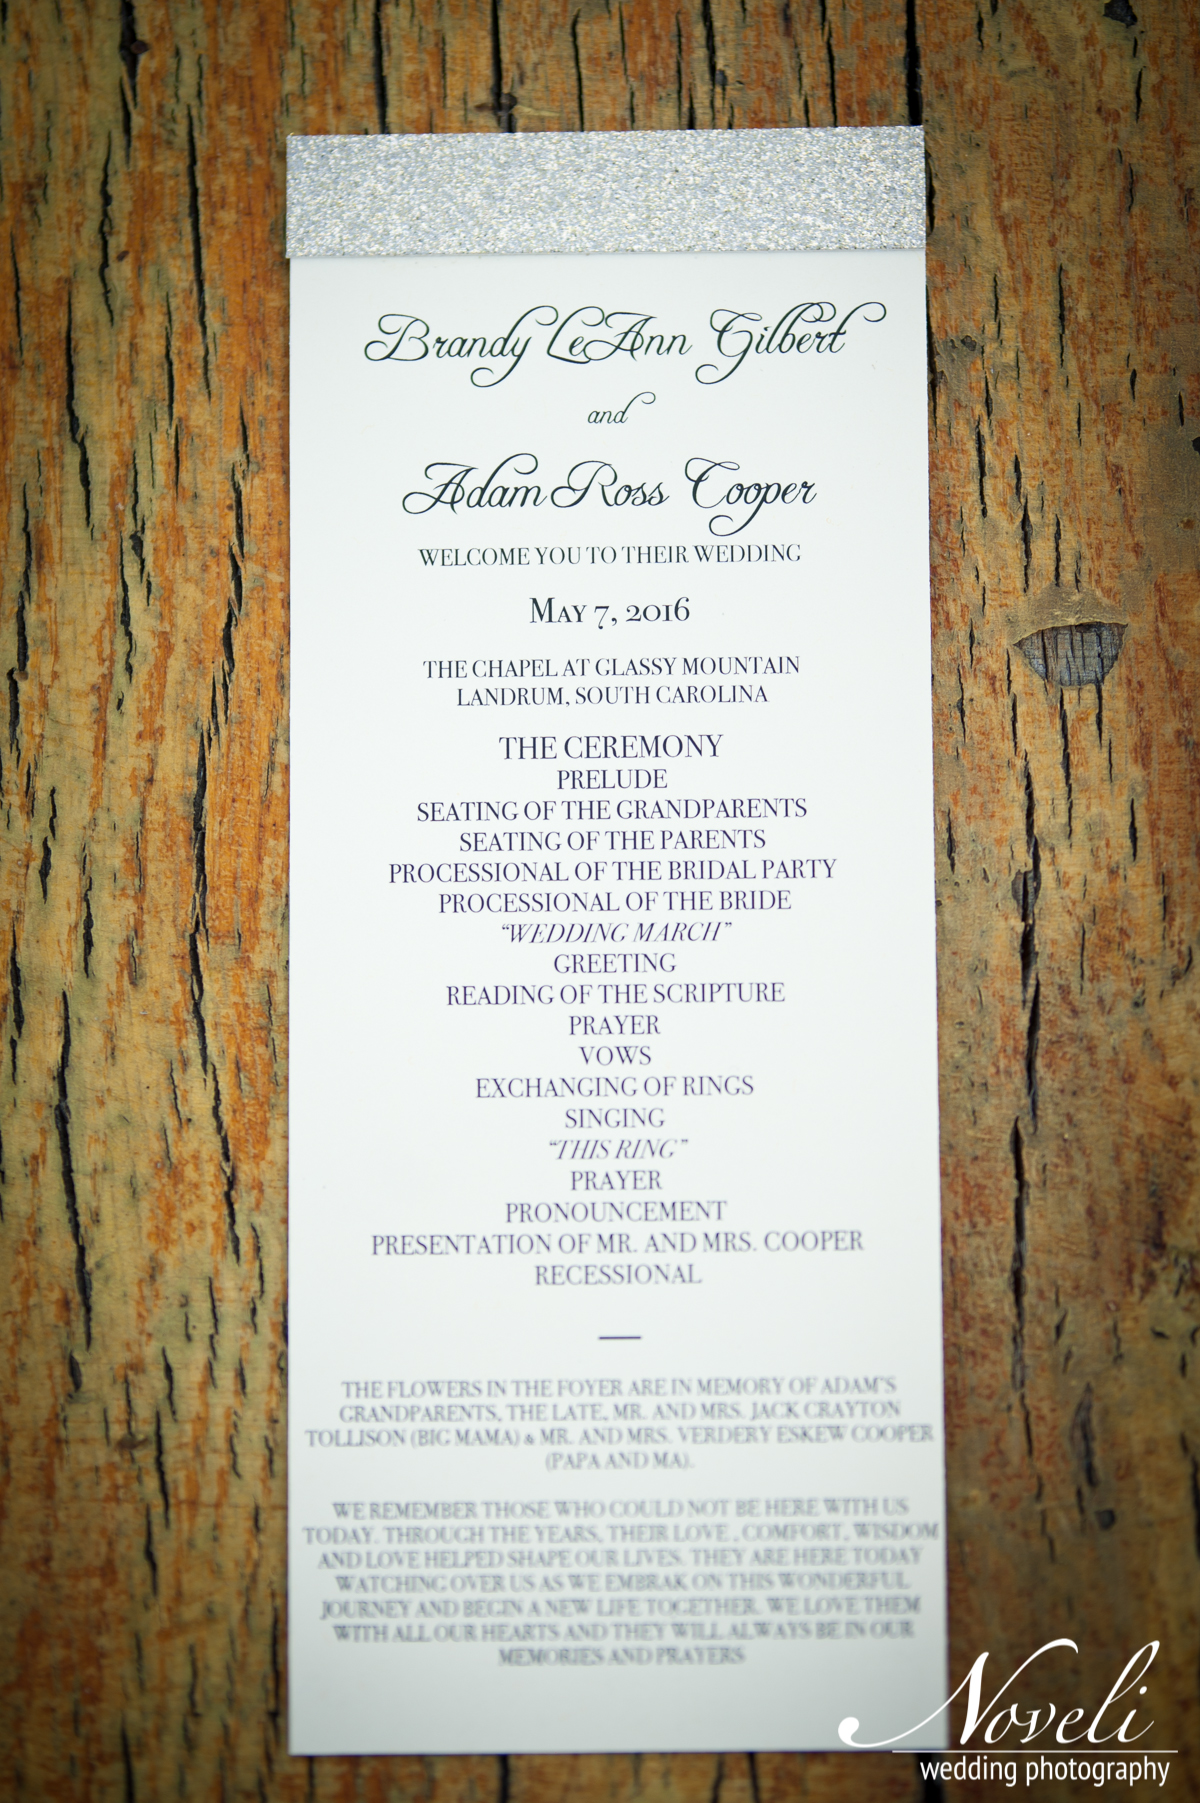 Brandy LeAnn Gilbert
and
Adam Ross Cooper
WELCOME YOU TO THEIR WEDDING
MAY 7, 2016
THE CHAPEL AT GLASSY MOUNTAIN
LANDRUM, SOUTH CAROLINA
THE CEREMONY
PRELUDE
SEATING OF THE GRANDPARENTS
SEATING OF THE PARENTS
PROCESSIONAL OF THE BRIDAL PARTY
PROCESSIONAL OF THE BRIDE
“WEDDING MARCH”
GREETING
READING OF THE SCRIPTURE
PRAYER
VOWS
EXCHANGING OF RINGS
SINGING
“THIS RING”
PRAYER
PRONOUNCEMENT
PRESENTATION OF MR. AND MRS. COOPER
RECESSIONAL
THE FLOWERS IN THE FOYER ARE IN MEMORY OF ADAM'S
GRANDPARENTS, THE LATE, MR. AND MRS. JACK CRAYTON
TOLLISON (BIG MAMA) & MR. AND MRS. VERDERY ESKEW COOPER
(PAPA AND MA).
WE REMEMBER THOSE WHO COULD NOT BE HERE WITH US
TODAY. THROUGH THE YEARS, THEIR LOVE , COMFORT, WISDOM
AND LOVE HELPED SHAPE OUR LIVES. THEY ARE HERE TODAY
WATCHING OVER US AS WE EMBRAK ON THIS WONDERFUL
JOURNEY AND BEGIN A NEW LIFE TOGETHER. WE LOVE THEM
WITH ALL OUR HEARTS AND THEY WILL ALWAYS BE IN OUR
MEMORIES AND PRAYERS
Noveli
wedding photography